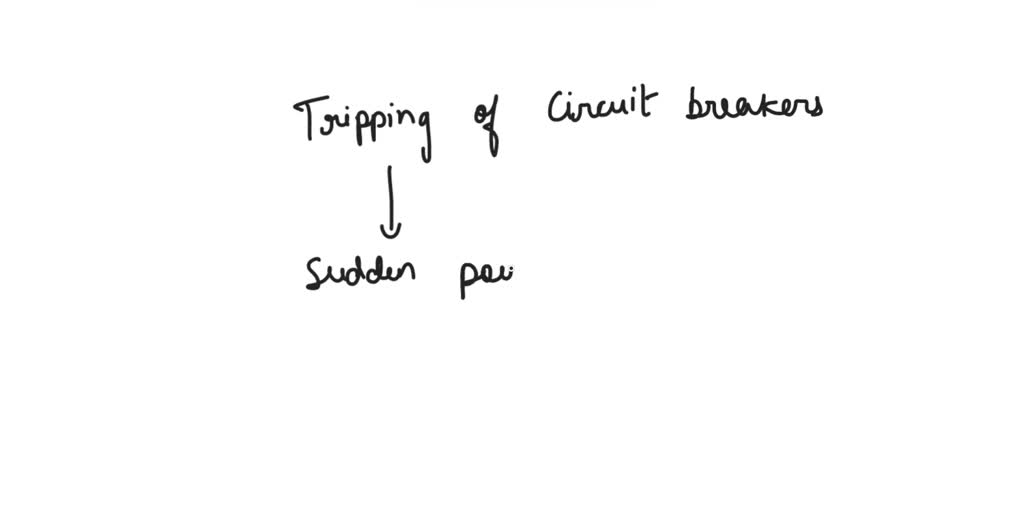 Tripping of Circuit breakers
↓
Sudden